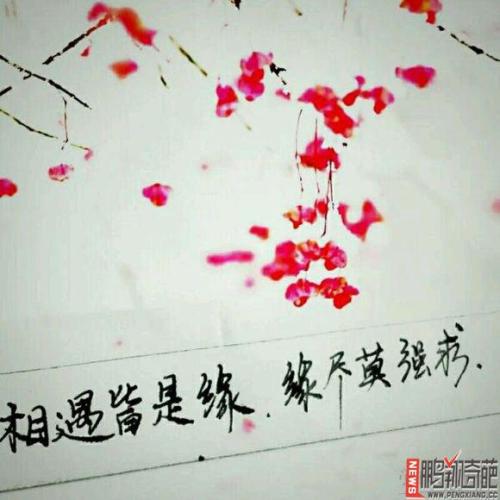 相遇皆是缘.缘尽莫强求.
NEWS 鹏翔奇葩
WWW.PENGXIANG.CC